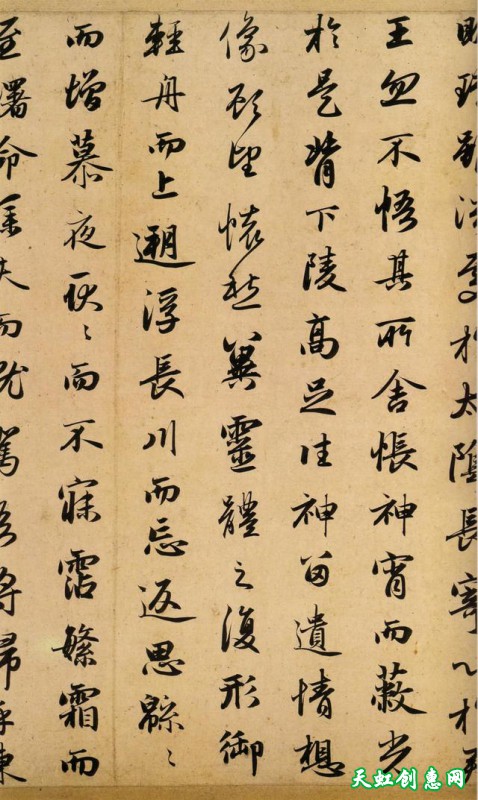 雖潛處於太陰長寄心於君
王忽不悟其所舍悵神宵而蔽光
於是背下陵高足往神留遺情想
像顧望懷愁冀靈體之復形御
輕舟而上遡浮長川而忘返思緜〻
而增慕夜耿〻而不寐霑繁霜而
至曙命僕夫而就駕吾將歸乎東
天虹创惠网